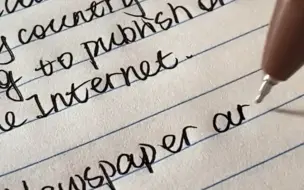 y country
g to publish on
e Internet.
Newspaper ar